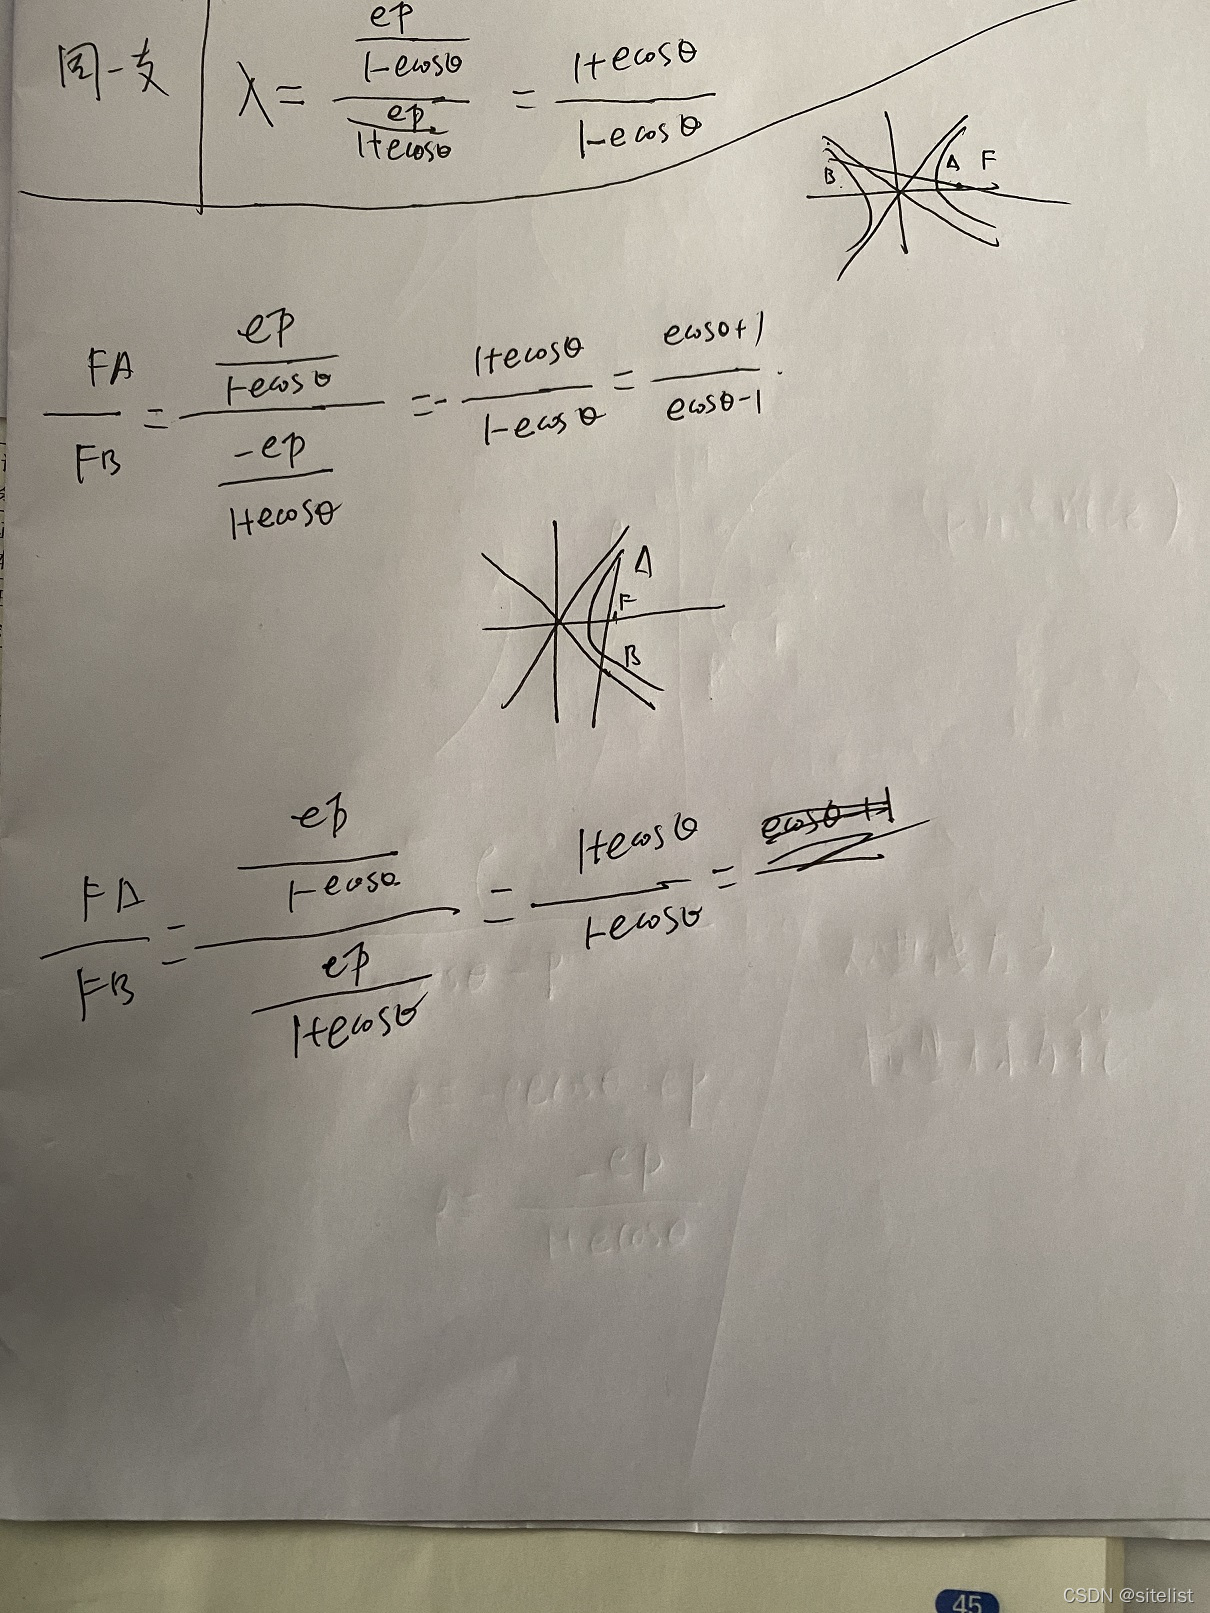 同一支 λ = (ep/(1-ecosθ))/(ep/(1+ecosθ)) = (1+ecosθ)/(1-ecosθ)
B A F
FA/FB = (ep/(1-ecosθ))/(-ep/(1+ecosθ)) = -(1+ecosθ)/(1-ecosθ) = (ecosθ+1)/(ecosθ-1).
A
F
B
FA/FB = (ep/(1-ecosθ))/(ep/(1+ecosθ)) = (1+ecosθ)/(1-ecosθ) =
45
CSDN @sitelist